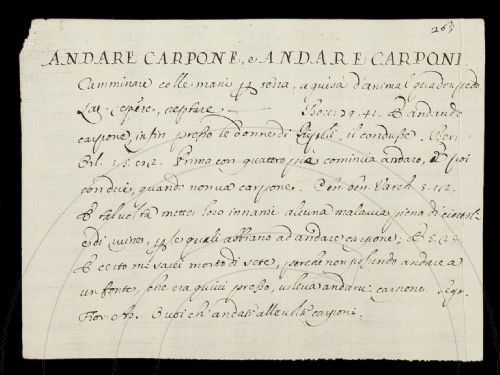 263
ANDARE CARPONE, e ANDARE CARPONI.
Camminare colle mani p terra, a guisa d'animal quadrupedo
Lat. repere, reptare. Bocc. 79. 41. E andando
carpone, infin presso le donne di il condusse.
15. Prima con quattro piè comincia andare, E poi
con due, quando non va carpone. Ben. Varch. 5.
E talvolta metter loro innanzi alcuna malavia piena di
e di p le quali abbiano ad andare carpone. E 5.
E certo mi sarei morto di sete, perche non potendo andare a
un fonte, che era quivi presso, carpone.
Fior. Suoi ch' andati alle volte carponi.